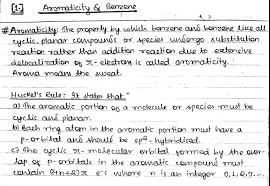 [1.] Aromaticity & Benzene
# Aromaticity: The property by which benzene and benzene like all
cyclic, planar compounds or species undergo substitution
reaction rather than addition reaction due to extensive
delocalization of π-electron is called aromaticity.
Aroma means the sweat.
Huckel's Rule: It state that"
a) The aromatic portion of a molecule or species must be
cyclic and planar.
b) Each ring atom in the aromatic portion must have a
p-orbital and should be sp²-hybridised.
c) The cyclic π-molecular orbital formed by the over
lap of p-orbitals in the aromatic compound must
contain (4n+2)π e⁻s where n is an integer 0,1,2,3....